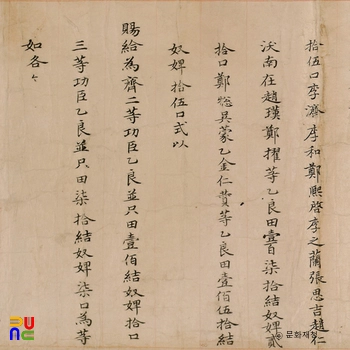 拾伍口李濟李和鄭熙啓李之蘭張思吉趙仁
沃南在趙璞鄭擢等乙良田壹百柒拾結奴婢貳
拾口鄭摠吳蒙乙金仁贊等乙良田壹佰伍拾結
奴婢拾伍口式以
賜給爲齊二等功臣乙良並只田壹佰結奴婢拾口
三等功臣乙良並只田柒拾結奴婢柒口爲等
如各々
문화재청